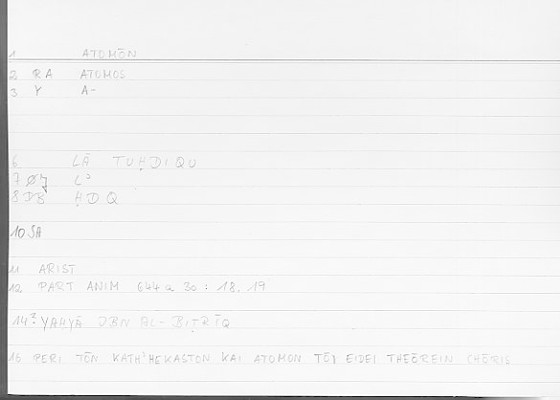 1 ATOMŌN
2 RA ATOMOS
3 Y A-
6 LĀ TUḤDIQU
7 L²
8 DB ḤDQ
10 SA
11 ARIST
12 PART ANIM 644 a 30 : 18, 19
14 ? YAḤYĀ IBN AL-BIṬRĪQ
16 PERI TŌN KATH'HEKASTON KAI ATOMON TŌI EIDEI THEŌREIN CHŌRIS